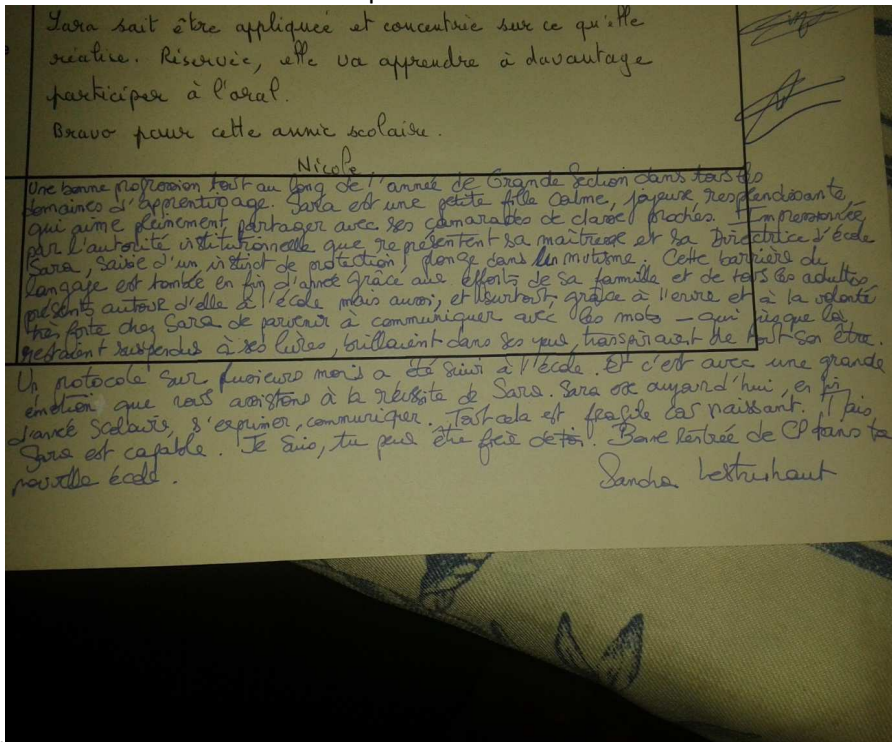 Sara sait être appliquée et concentrée sur ce qu'elle
réalise. Réservée, elle va apprendre à davantage
participer à l'oral.
Bravo pour cette année scolaire.
Nicole
Une bonne progression tout au long de l'année de Grande Section dans tous les
domaines d'apprentissage. Sara est une petite fille calme, joyeuse resplendissante,
qui aime pleinement partager avec ses camarades de classe proches. Impressionnée
par l'autorité institutionnelle que représentent sa maîtresse et sa Directrice d'école
Sara, saisie d'un instinct de protection, plonge dans un mutisme. Cette barrière du
langage est tombée en fin d'année grâce aux efforts de sa famille et de tous les adultes
présents autour d'elle à l'école mais aussi, et surtout, grâce à l'envie et à la volonté
très forte chez Sara de parvenir à communiquer avec les mots – qui jusque là
restaient suspendus à ses lèvres, brillaient dans ses yeux, transpiraient de tout son être.
Un protocole sur plusieurs mois a été suivi à l'école. Et c'est avec une grande
émotion que nous assistons à la réussite de Sara. Sara ose aujourd'hui, en fin
d'année scolaire, s'exprimer, communiquer. Tout cela est fragile car naissant. Mais
Sara est capable. Je sais, tu peux être fière de toi. Bonne rentrée de CP dans ta
nouvelle école.
Sandra